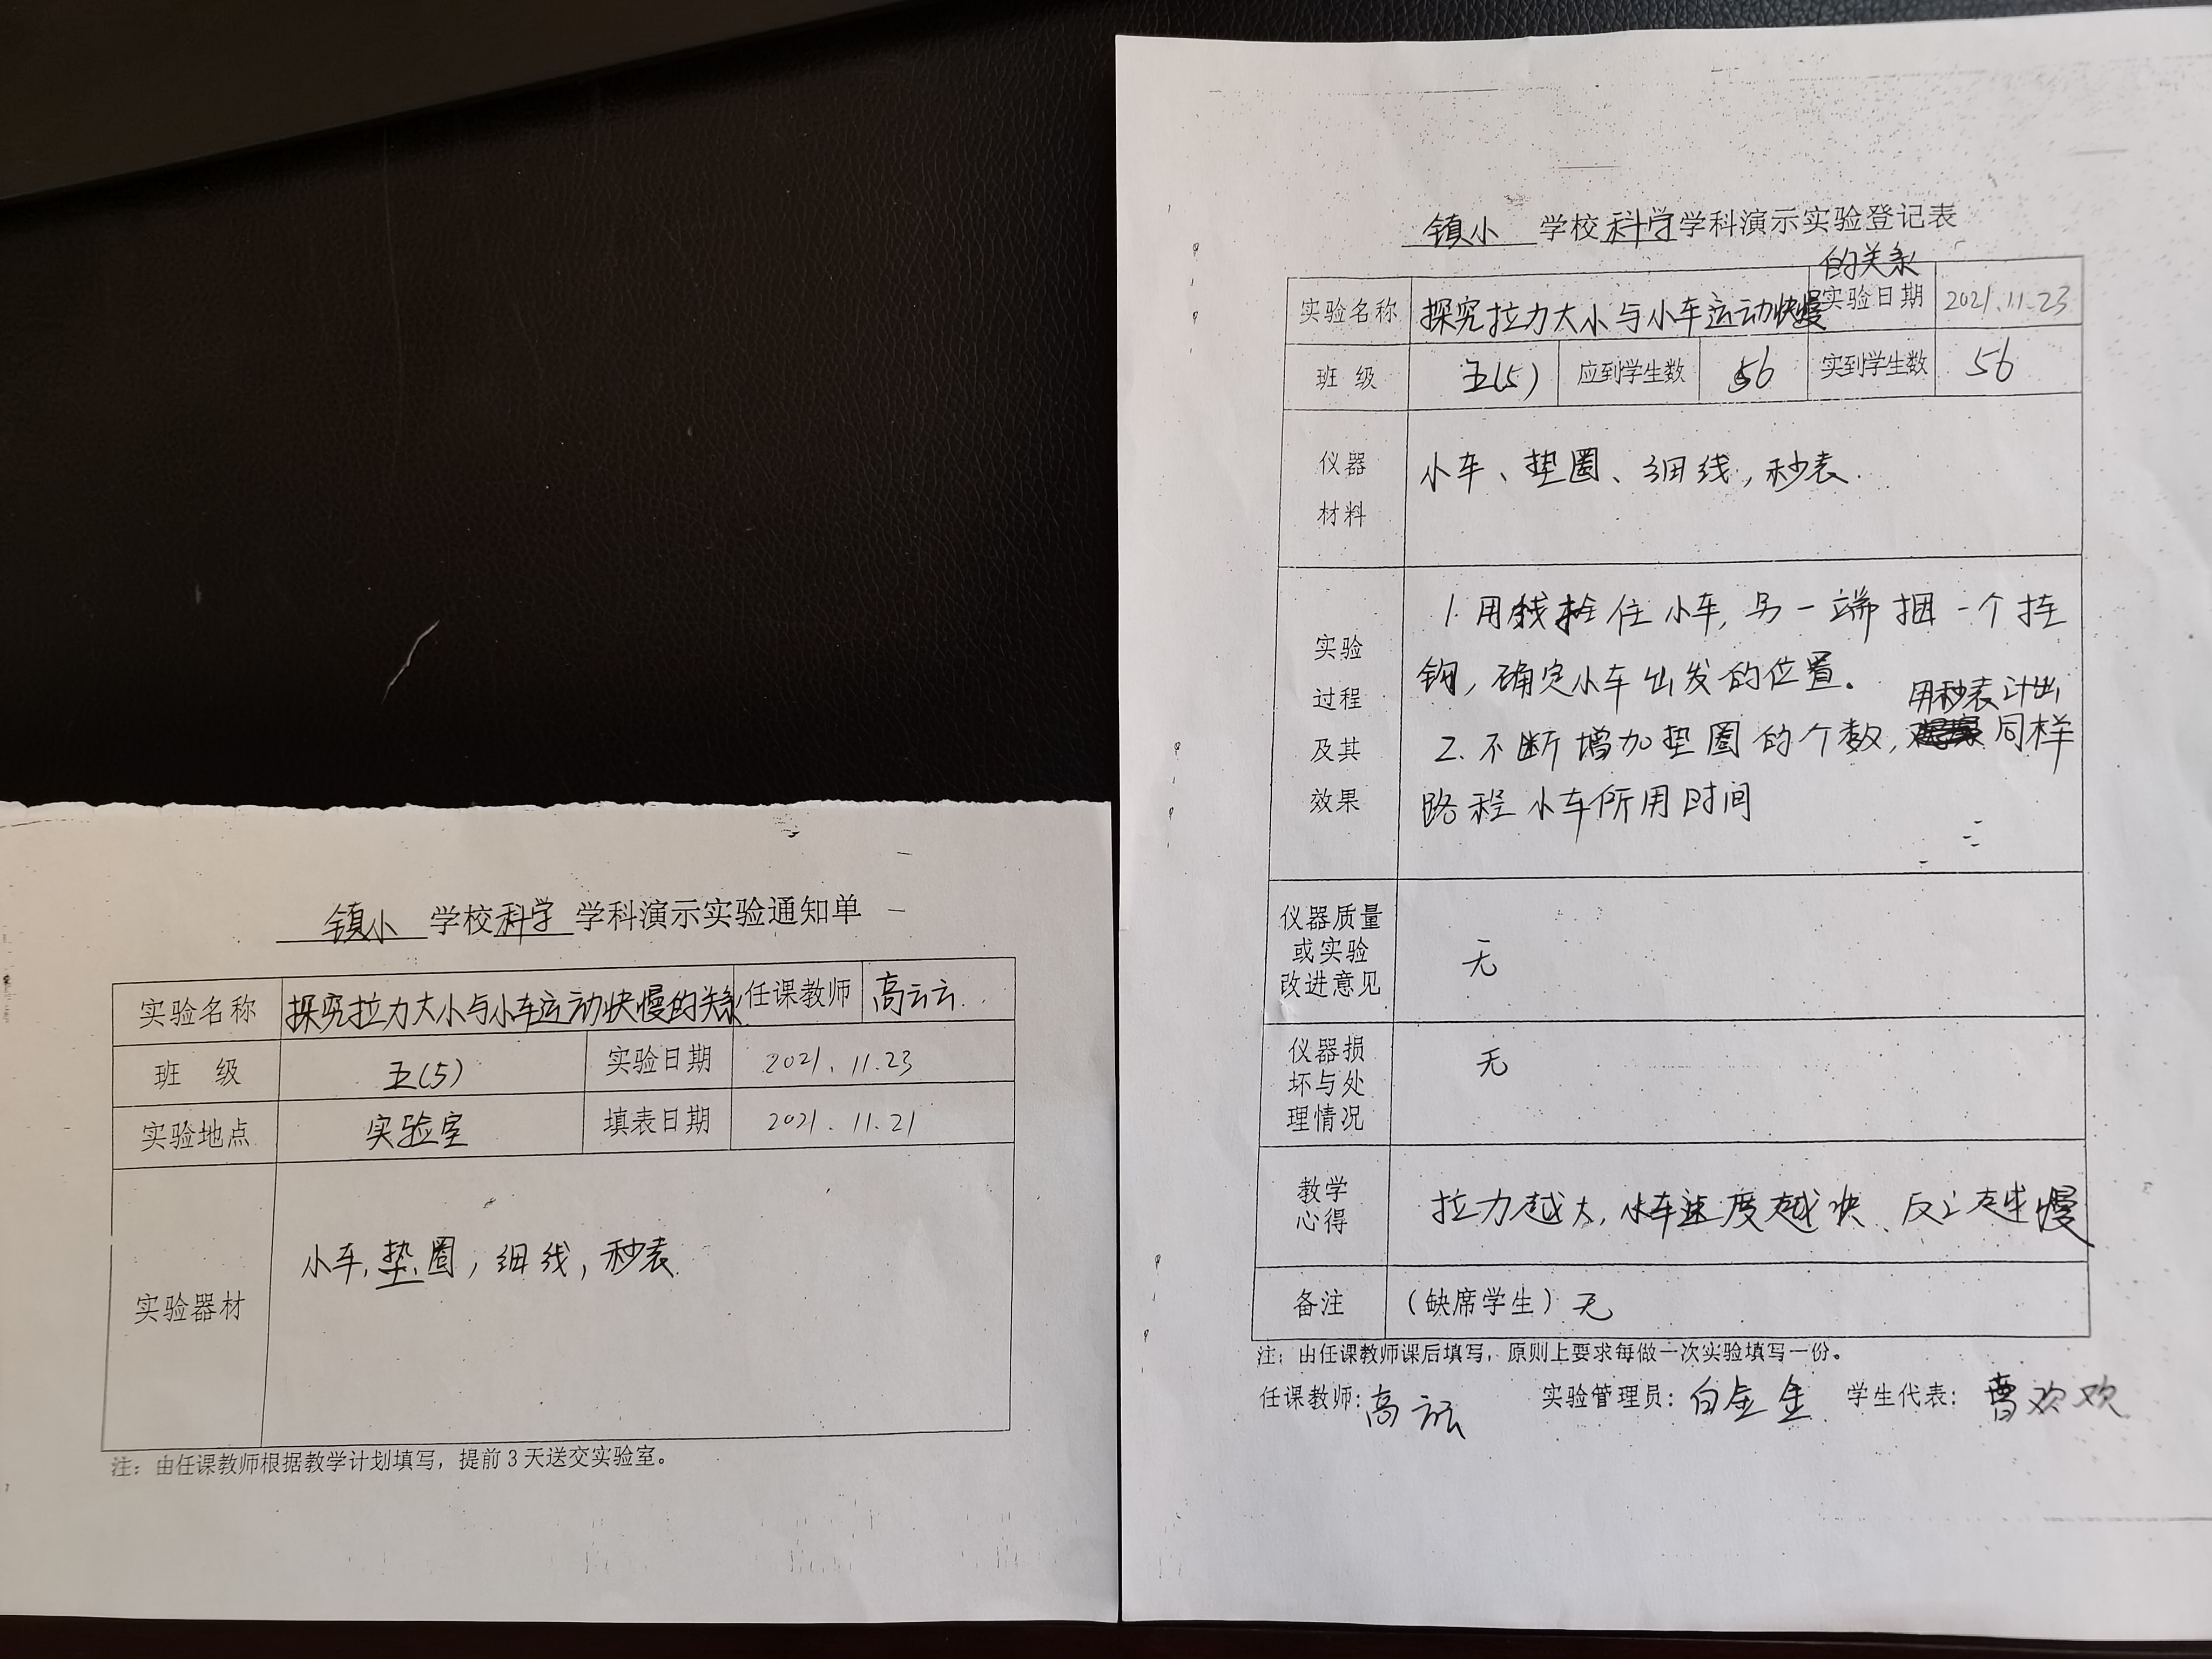 镇小 学校科学 学科演示实验通知单
实验名称 探究拉力大小与小车运动快慢的关系 任课教师 高云云
班 级 五(5) 实验日期 2021.11.23
实验地点 实验室 填表日期 2021.11.21
实验器材 小车,垫圈,细线,秒表
注：由任课教师根据教学计划填写，提前3天送交实验室。
镇小 学校科学学科演示实验登记表
的关系
实验名称 探究拉力大小与小车运动快慢 实验日期 2021.11.23
班 级 五(5) 应到学生数 56 实到学生数 56
仪器
材料
小车、垫圈、细线,秒表.
实验
过程
及其
效果
1.用线拴住小车,另一端捆一个挂
钩,确定小车出发的位置。
用秒表计出
2.不断增加垫圈的个数, 同样
路程小车所用时间
仪器质量
或实验
改进意见
无
仪器损
坏与处
理情况
无
教学
心得
拉力越大,小车速度越快、反之越慢
备注 （缺席学生）无
注：由任课教师课后填写，原则上要求每做一次实验填写一份。
任课教师:高云云 实验管理员:白金金 学生代表:曹欢欢